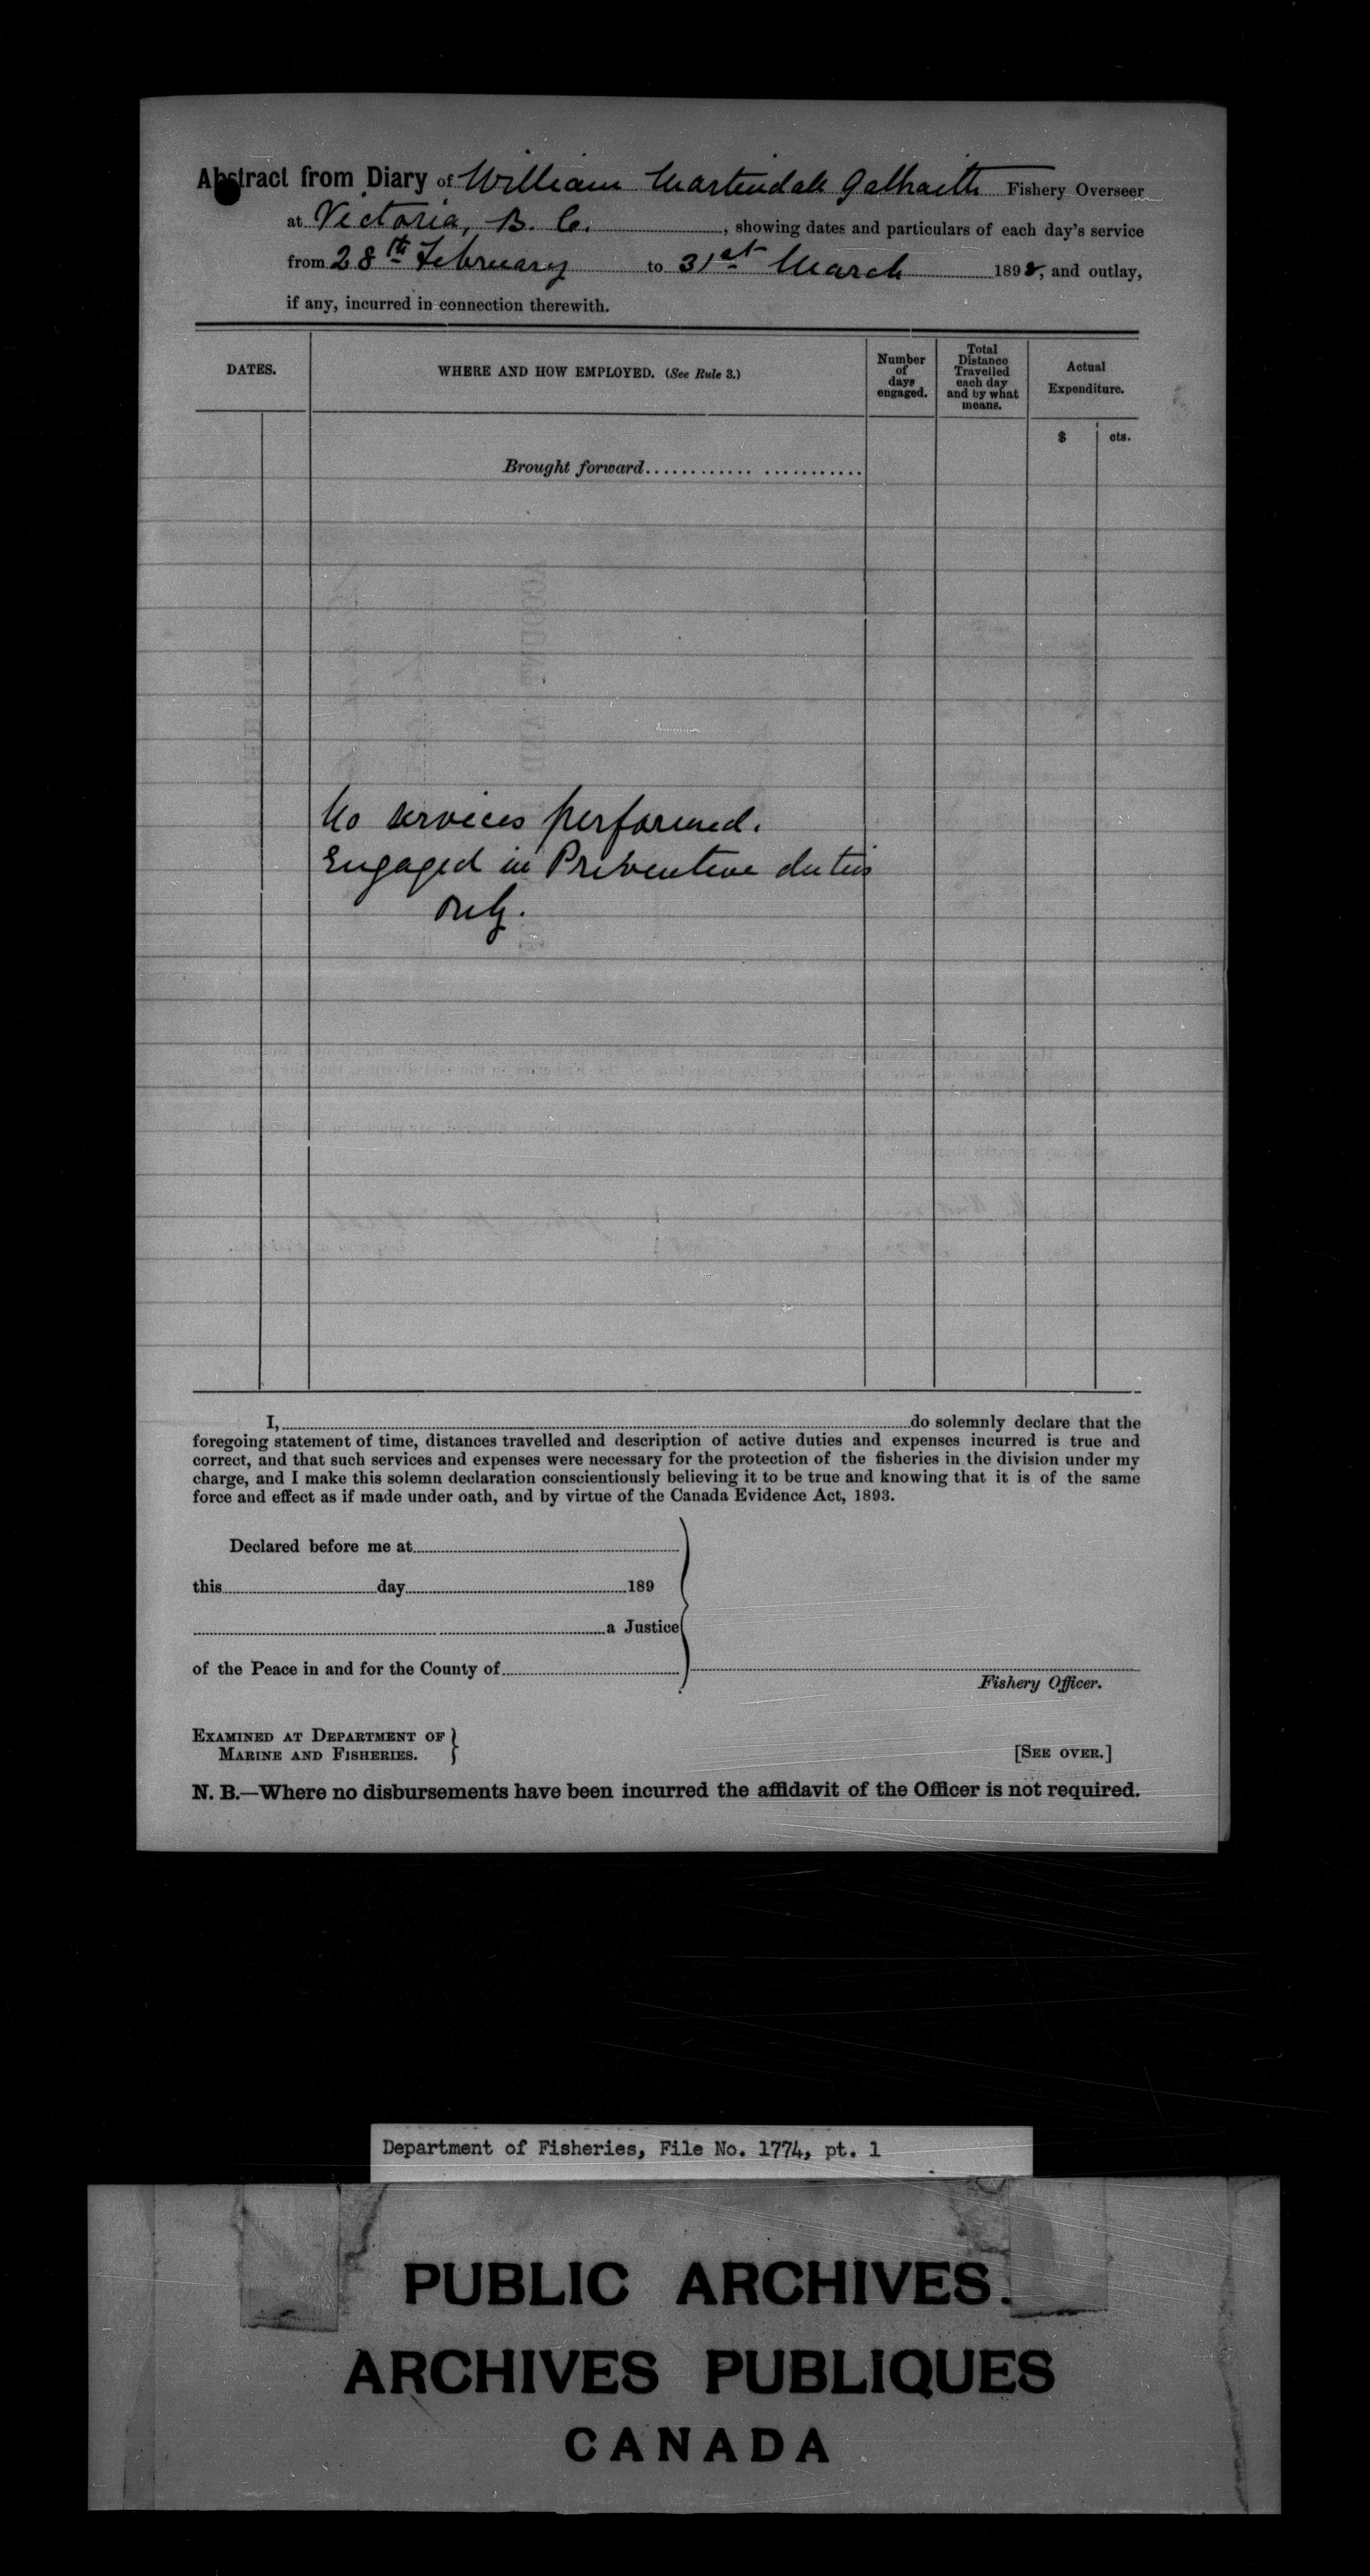 Abstract from Diary of William Martindale Galbraith Fishery Overseer
at Victoria, B. C. , showing dates and particulars of each day's service
from 28th February to 31st March 1898, and outlay,
if any, incurred in connection therewith.
DATES.
WHERE AND HOW EMPLOYED. (See Rule 3.)
Number of days engaged.
Total Distance Travelled each day and by what means.
Actual Expenditure.
$ cts.
Brought forward
No services performed.
Engaged in Preventive duties
only.
I, do solemnly declare that the
foregoing statement of time, distances travelled and description of active duties and expenses incurred is true and
correct, and that such services and expenses were necessary for the protection of the fisheries in the division under my
charge, and I make this solemn declaration conscientiously believing it to be true and knowing that it is of the same
force and effect as if made under oath, and by virtue of the Canada Evidence Act, 1893.
Declared before me at
this day 189
a Justice
of the Peace in and for the County of
Fishery Officer.
EXAMINED AT DEPARTMENT OF
MARINE AND FISHERIES.
[SEE OVER.]
N. B.—Where no disbursements have been incurred the affidavit of the Officer is not required.
Department of Fisheries, File No. 1774, pt. 1
PUBLIC ARCHIVES
ARCHIVES PUBLIQUES
CANADA